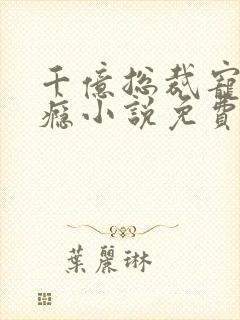 千億總裁寵
癮小說免費
葉麗琳